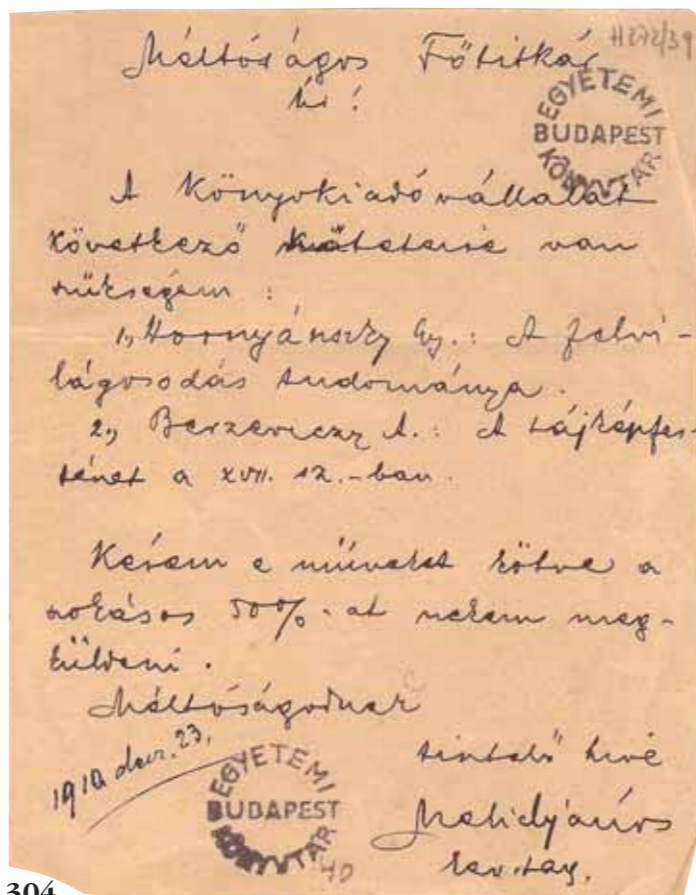 H272/39
Méltóságos Főtitkár
Úr!
EGYETEMI
BUDAPEST
KÖNYVTÁR
A Könyvkiadóvállalat
következő köteteire van
szükségem :
1., Hornyánszky Gy.: A felvi-
lágosodás tudománya.
2., Berzeviczy A.: A tájképfes-
tészet a XVII. sz.-ban.
Kérem e műveket kötve a
szokásos 50%-at nekem meg-
küldeni.
Méltóságodnak
1910 dec. 23.
tisztelő híve
EGYETEMI
BUDAPEST
KÖNYVTÁR
40
lev. tag.
304